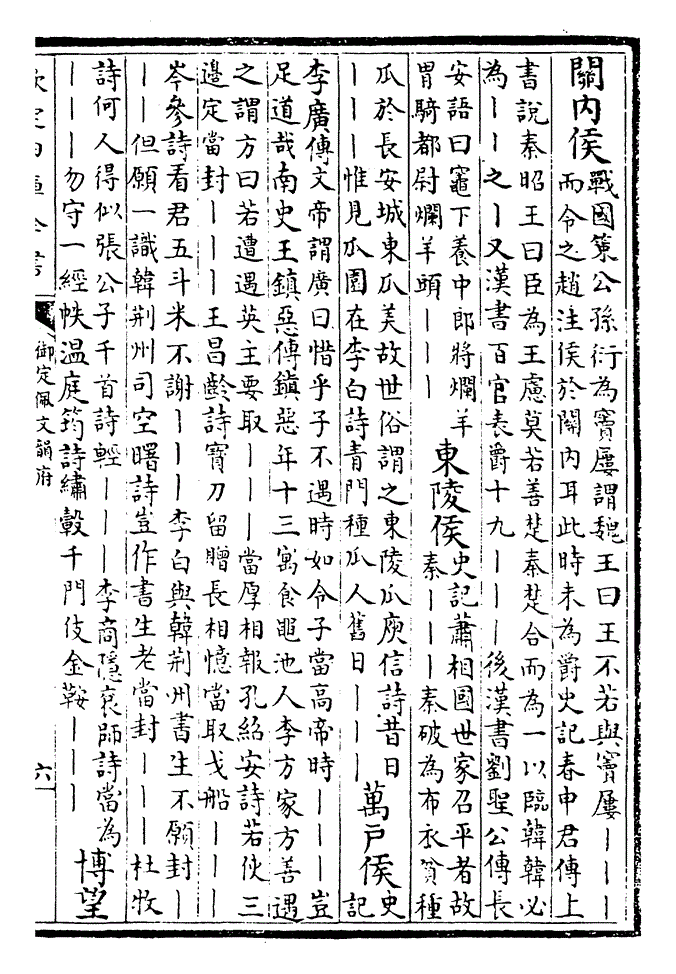 關內侯
戰國策公孫衍為竇屢謂魏王曰王不若與竇屢｜｜｜
而令之趙注侯於關內耳此時未為爵史記春申君傳上
書說秦昭王曰臣為王慮莫若善楚秦楚合而為一以臨韓韓必
為｜｜之｜又漢書百官表爵十九｜｜｜後漢書劉聖公傳長
安語曰竈下養中郎將爛羊
胃騎都尉爛羊頭｜｜｜
東陵侯
史記蕭相國世家召平者故
秦｜｜｜秦破為布衣貧種
瓜於長安城東瓜美故世俗謂之東陵瓜庾信詩昔日
｜｜｜惟見瓜園在李白詩青門種瓜人舊日｜｜｜
萬戶侯
史
記
李廣傳文帝謂廣曰惜乎子不遇時如令子當高帝時｜｜｜豈
足道哉南史王鎮惡傳鎮惡年十三寓食黽池人李方家方善遇
之謂方曰若遭遇英主要取｜｜｜當厚相報孔紹安詩若伙三
邉定當封｜｜｜王昌齡詩寶刀留贈長相憶當取戈船｜｜｜
岑參詩看君五斗米不謝｜｜｜李白與韓荆州書生不願封｜
｜｜但願一識韓荆州司空曙詩豈作書生老當封｜｜｜杜牧
詩何人得似張公子千首詩輕｜｜｜李商隱哀師詩當為
｜｜｜勿守一經帙温庭筠詩繡轂千門伎金鞍｜｜｜
博望
欽定四庫全書
御定佩文韻府
六